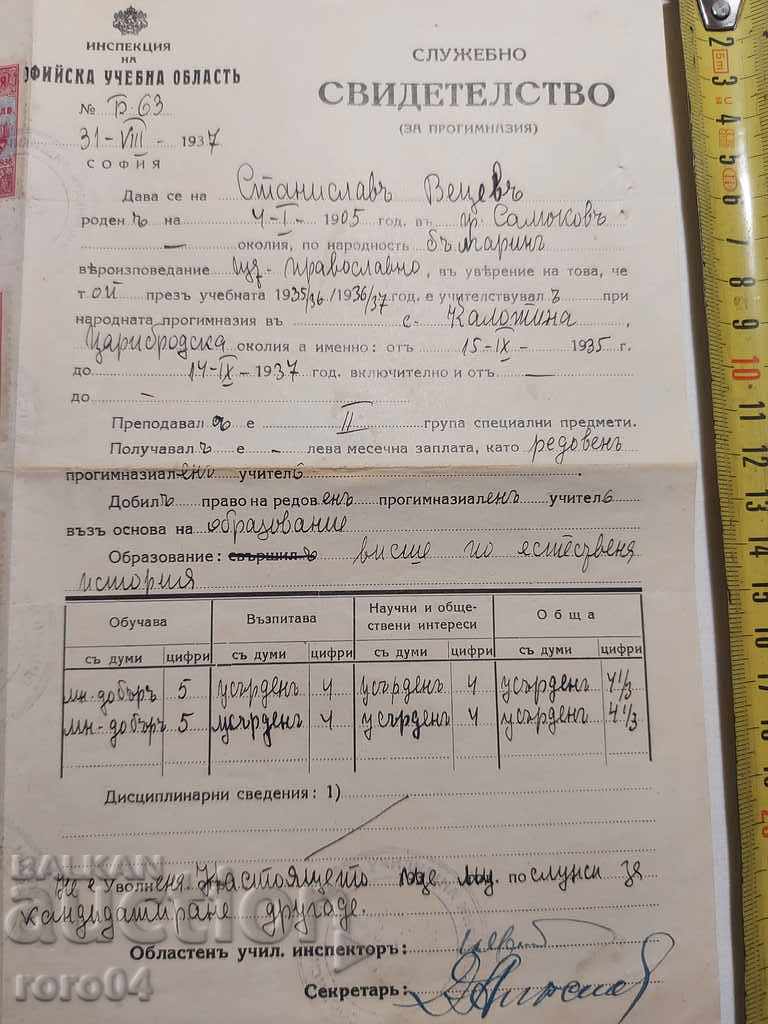 ИНСПЕКЦИЯ
НА
ОФИЙСКА УЧЕБНА ОБЛАСТЬ
№ Б-63
31-VIII-1937
СОФИЯ
СЛУЖЕБНО
СВИДЕТЕЛСТВО
(ЗА ПРОГИМНАЗИЯ)
Дава се на Станиславъ Вецевъ
роден ъ на 4-I-1905 год. въ гр. Самоковъ
— околия, по народность българинъ
вѣроизповедание изт-православно, въ увѣрение на това, че
той презъ учебната 1935/36/1936/37 год. е учителствувал ъ при
народната прогимназия въ с. Калотина
Царибродска околия а именно: отъ 15-IX-1935 г.
до 14-IX-1937 год. включително и отъ —
до —
Преподавал ъ е II група специални предмети.
Получавал ъ е - лева месечна заплата, като редовенъ
прогимназиаленъ учител ь.
Добилъ право на редовенъ прогимназиаленъ учител ь
възъ основа на образование
Образование: свършил ъ висше по естествена
история
Обучава Възпитава Научни и обще-ствени интереси Обща
съ думи цифри съ думи цифри съ думи цифри съ думи цифри
мн-добъръ 5 усърденъ 4 усърденъ 4 усърденъ 4 1/3
мн-добъръ 5 усърденъ 4 усърденъ 4 усърденъ 4 1/3
Дисциплинарни сведения: 1)
Не е уволненя. Настоящето му послужи за
кандидатиране другаде.
Областенъ учил. инспекторъ:
Секретарь:
BALKAN
auction
roro04
2 3 4 5 6 7 8 9 10 11 12 13 14 15 16 17 18 19 20